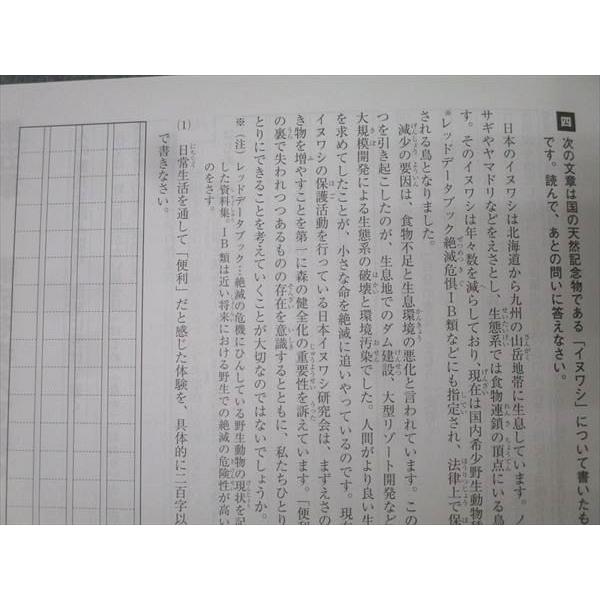 四 次の文章は国の天然記念物である「イヌワシ」について書いたも
です。読んで、あとの問いに答えなさい。
日本のイヌワシは北海道から九州の山岳地帯に生息しています。ノ
サギやヤマドリなどをえさとし、生態系では食物連鎖の頂点にいる鳥
す。そのイヌワシは年々数を減らしており、現在は国内希少野生動物種
※レッドデータブック絶滅危惧ⅠB類などにも指定され、法律上で保
される鳥となりました。
減少の要因は、食物不足と生息環境の悪化と言われています。この
つを引き起こしたのが、生息地でのダム建設、大型リゾート開発など
大規模開発による生態系の破壊と環境汚染でした。人間がより良い生
を求めてしたことが、小さな命を絶滅に追いやっているのです。現在
イヌワシの保護活動を行っている日本イヌワシ研究会は、まずえさの
き物を増やすことを第一に森の健全化の重要性を訴えています。「便利
の裏で失われつつあるものの存在を意識するとともに、私たちひとり
とりにできることを考えていくことが大切なのではないでしょうか。
※(注) レッドデータブック…絶滅の危機にひんしている野生動物の現状を記
した資料集。ⅠB類は近い将来における野生での絶滅の危険性が高い
のをさす。
(1) 日常生活を通して「便利」だと感じた体験を、具体的に二百字以
で書きなさい。